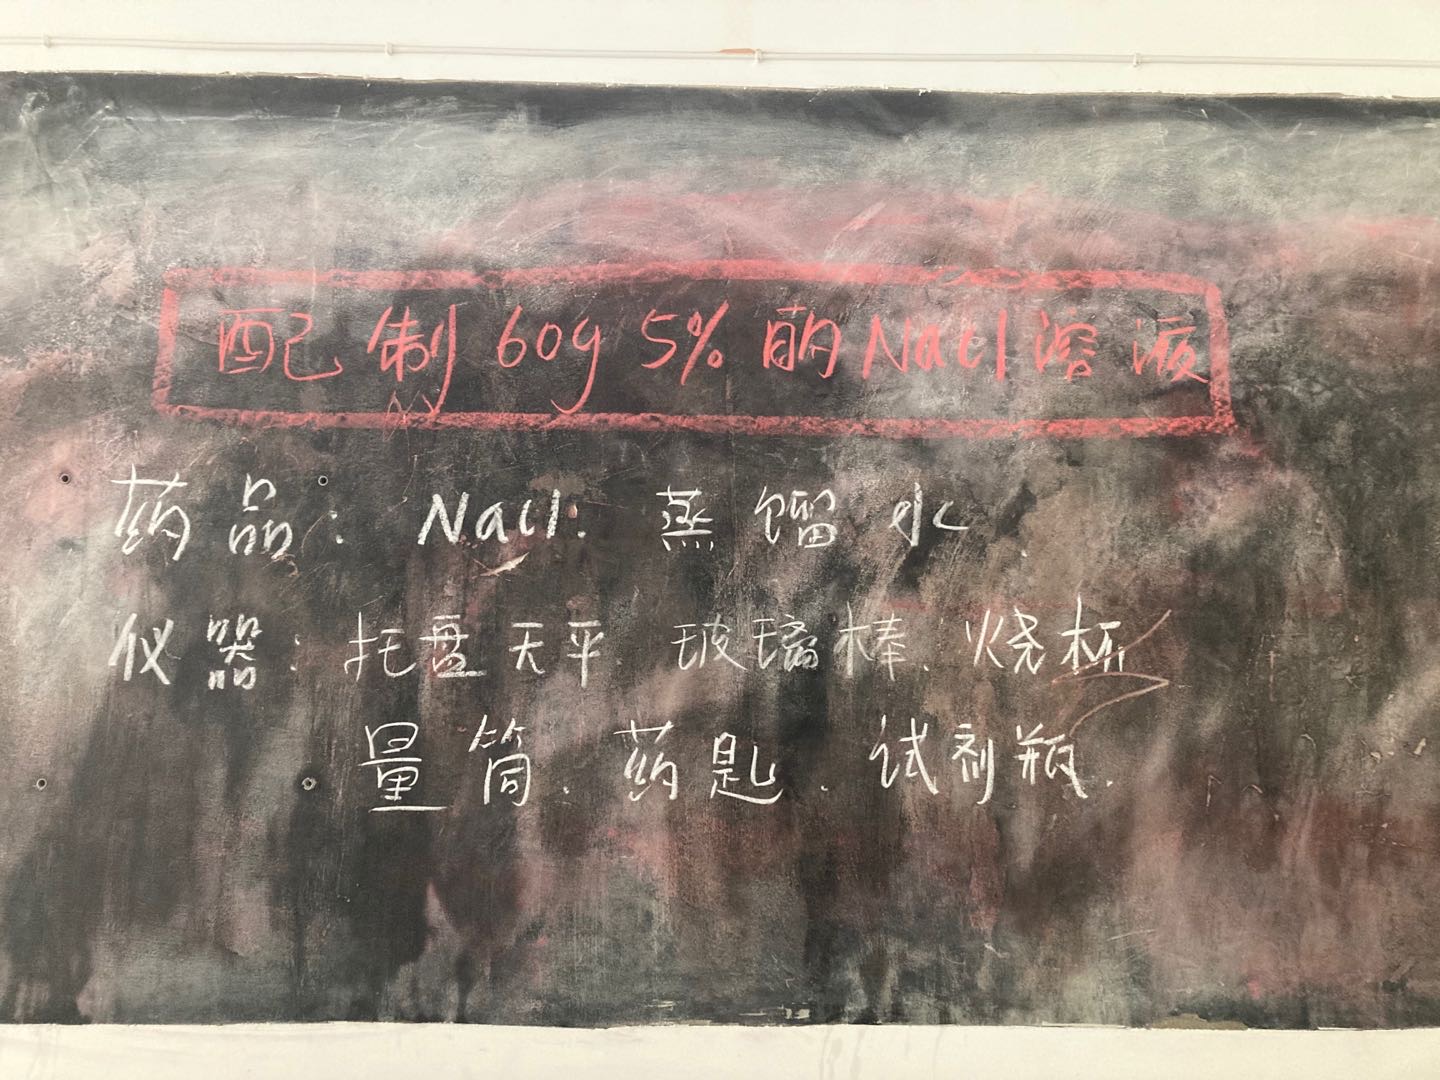 配制60g 5%的NaCl溶液
药品：NaCl. 蒸馏水.
仪器：托盘天平. 玻璃棒. 烧杯
量筒. 药匙. 试剂瓶.